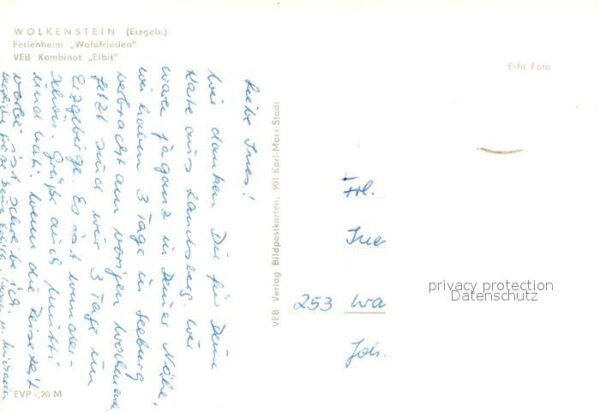 WOLKENSTEIN (Erzgeb.)
Ferienheim „Waldfrieden"
VEB Kombinat „Elbit"
Echt Foto
Liebe Ines!
Wir danken Dir für Deine
Karte aus Landsberg. Wir
waren ja ganz in Deiner Nähe,
wir haben 3 Tage in Seeburg
verbracht am vorigen Wochenende
Jetzt sind wir 3 Tage im
Erzgebirge. Es ist wunder-
schön. Grüße auch Mutti
und Vati. Wenn die Reisezeit
vorbei ist schreibe ich
Herzliche Grüße Deine
VEB Verlag Bildpostkarten, 901 Karl-Marx-Stadt
Frl.
Ine
253 Wa
Joh.
privacy protection
Datenschutz
EVP -,20 M